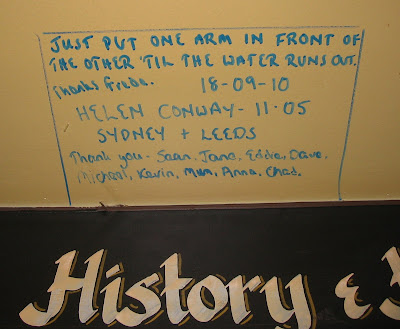 JUST PUT ONE ARM IN FRONT OF
THE OTHER 'TIL THE WATER RUNS OUT.
Thanks Freda. 18-09-10
HELEN CONWAY - 11.05
SYDNEY + LEEDS
Thank you - Sean, Jane, Eddie, Dave,
Michael, Kevin, Mum, Anna, Chad.
History &